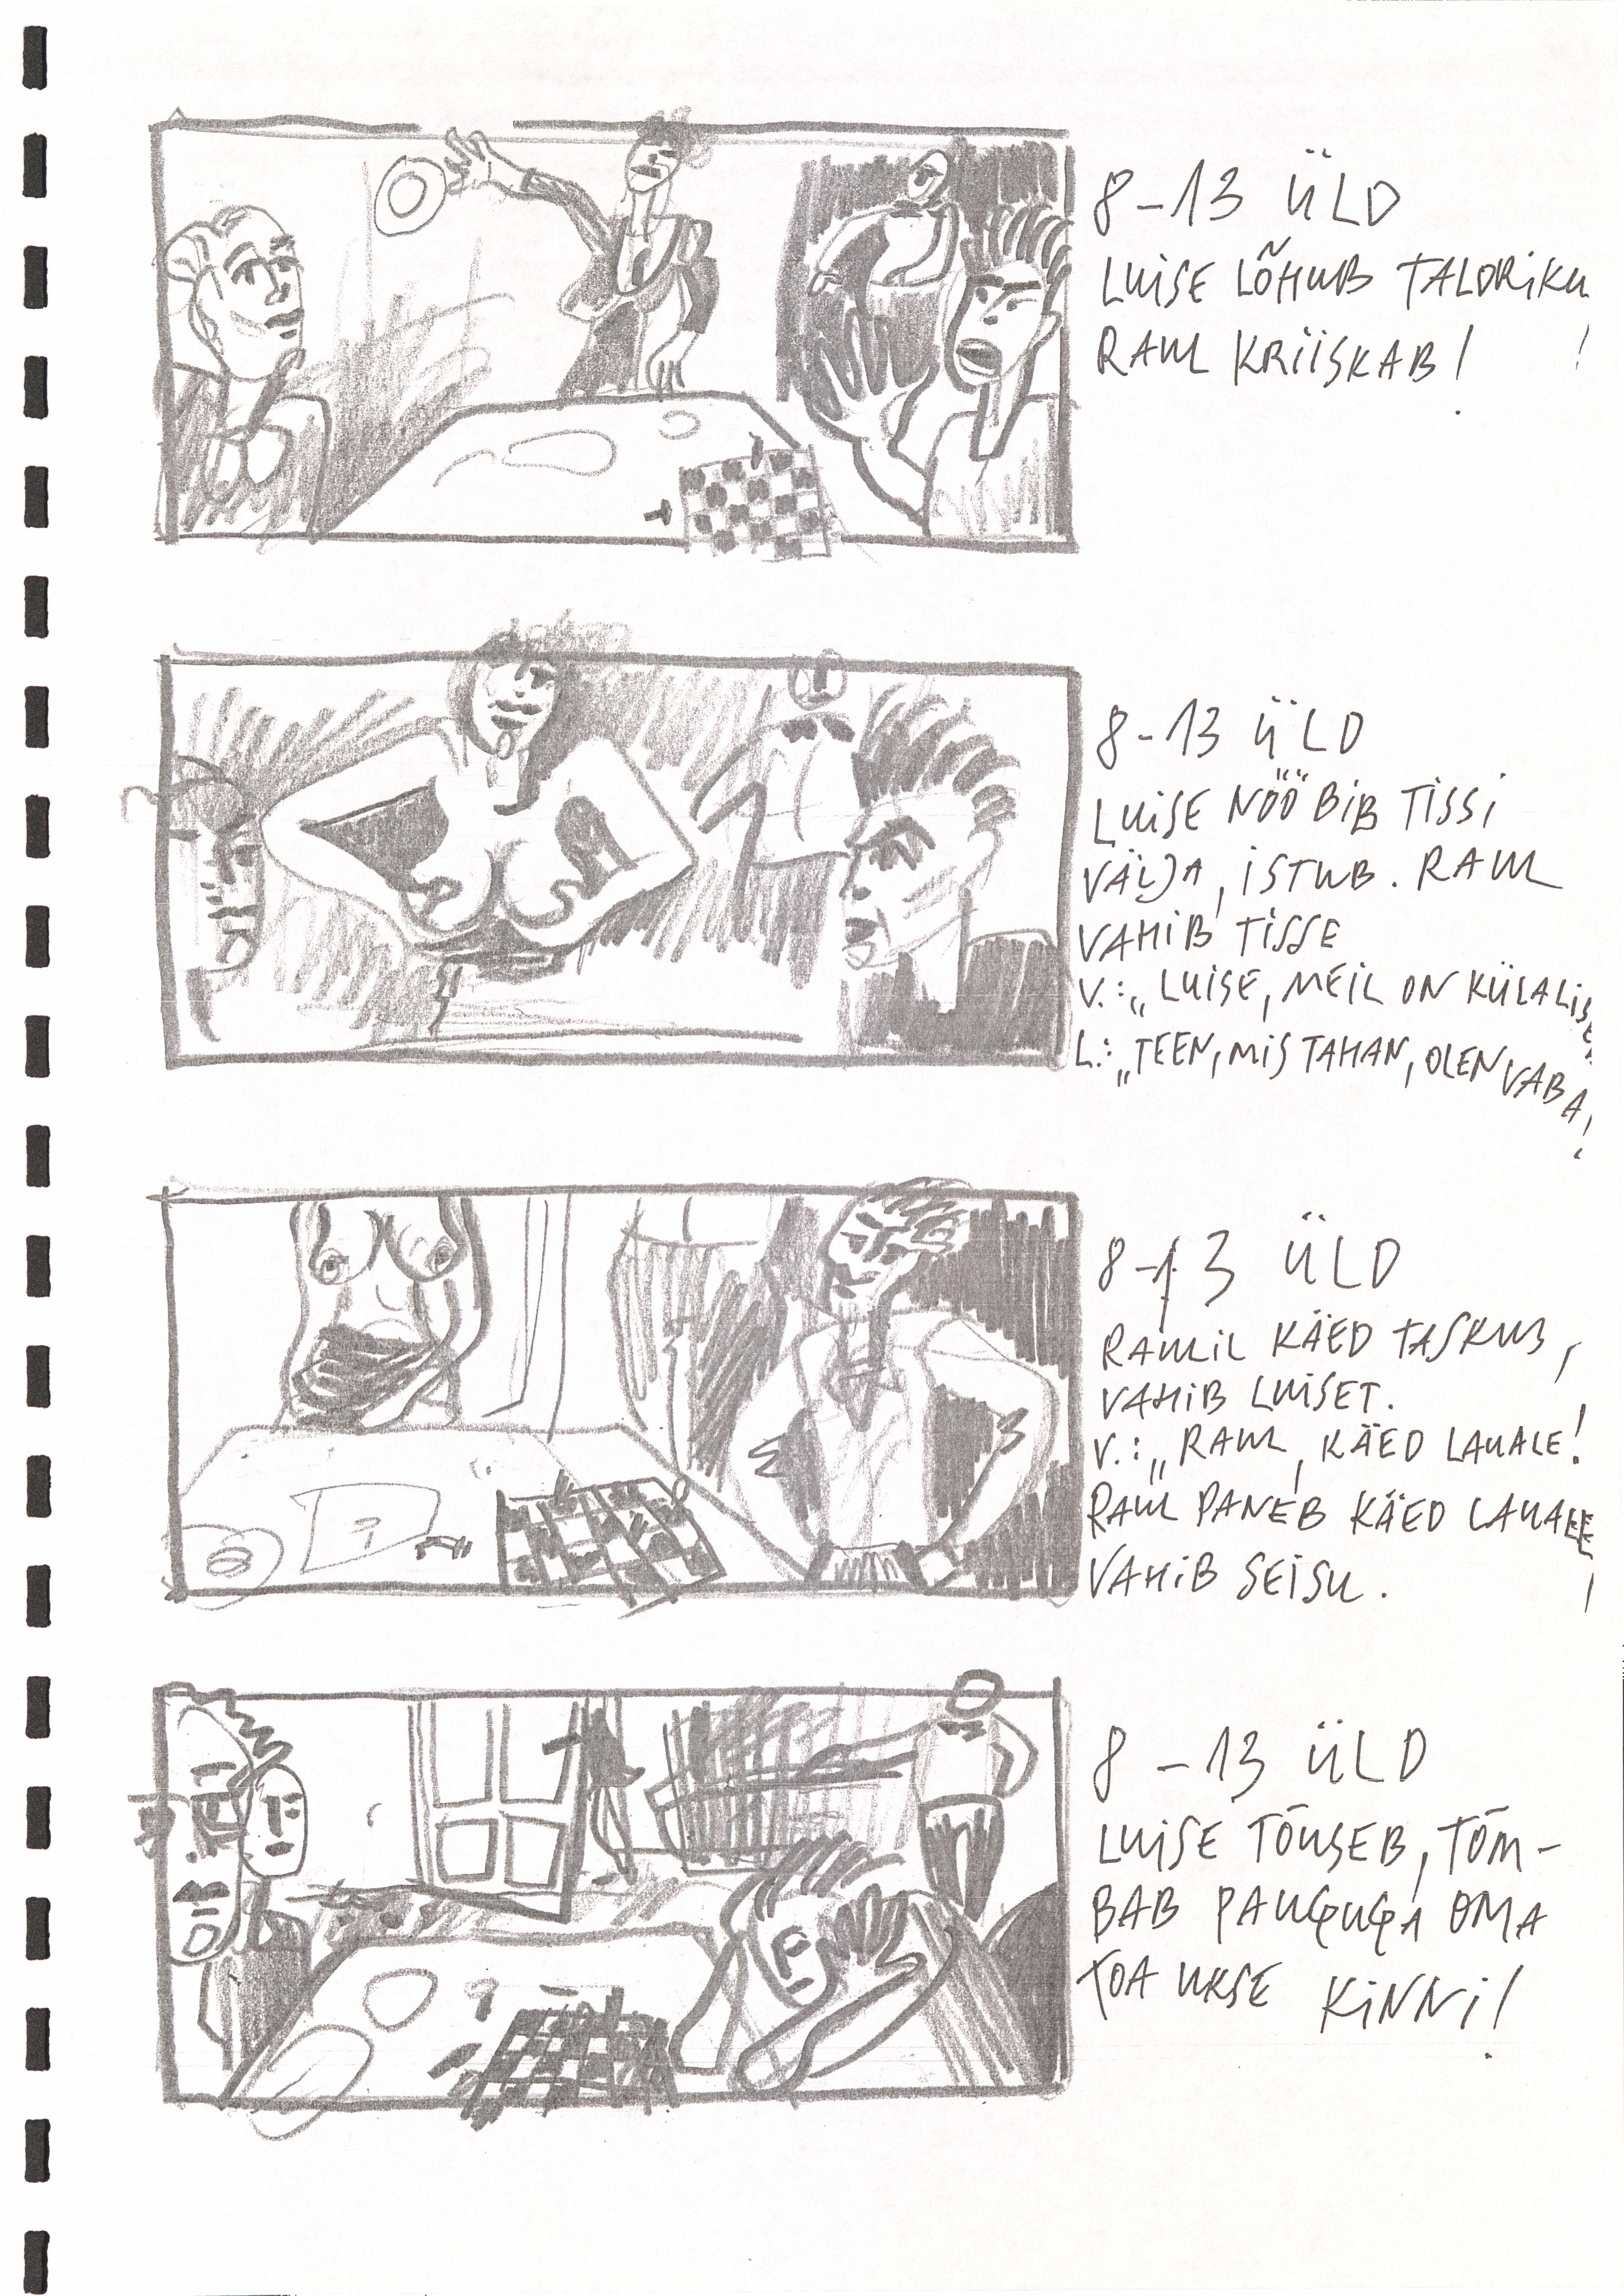 8-13 ÜLD
LUISE LÕHUB TALDRIKU
RAUL KRIISKAB!
!
8-13 ÜLD
LUISE NÖÖBIB TISSI
VÄLJA, ISTUB. RAUL
VAHIB TISSE
V.: „LUISE, MEIL ON KÜLALISED
L.: „TEEN, MIS TAHAN, OLEN VABA!
8-13 ÜLD
RAULIL KÄED TASKUS,
VAHIB LUISET.
V.: „RAUL, KÄED LAUALE!
RAUL PANEB KÄED LAUALE,
VAHIB SEISU.
8-13 ÜLD
LUISE TÕUSEB, TÕM-
BAB PAUGUGA OMA
TOA UKSE KINNI!